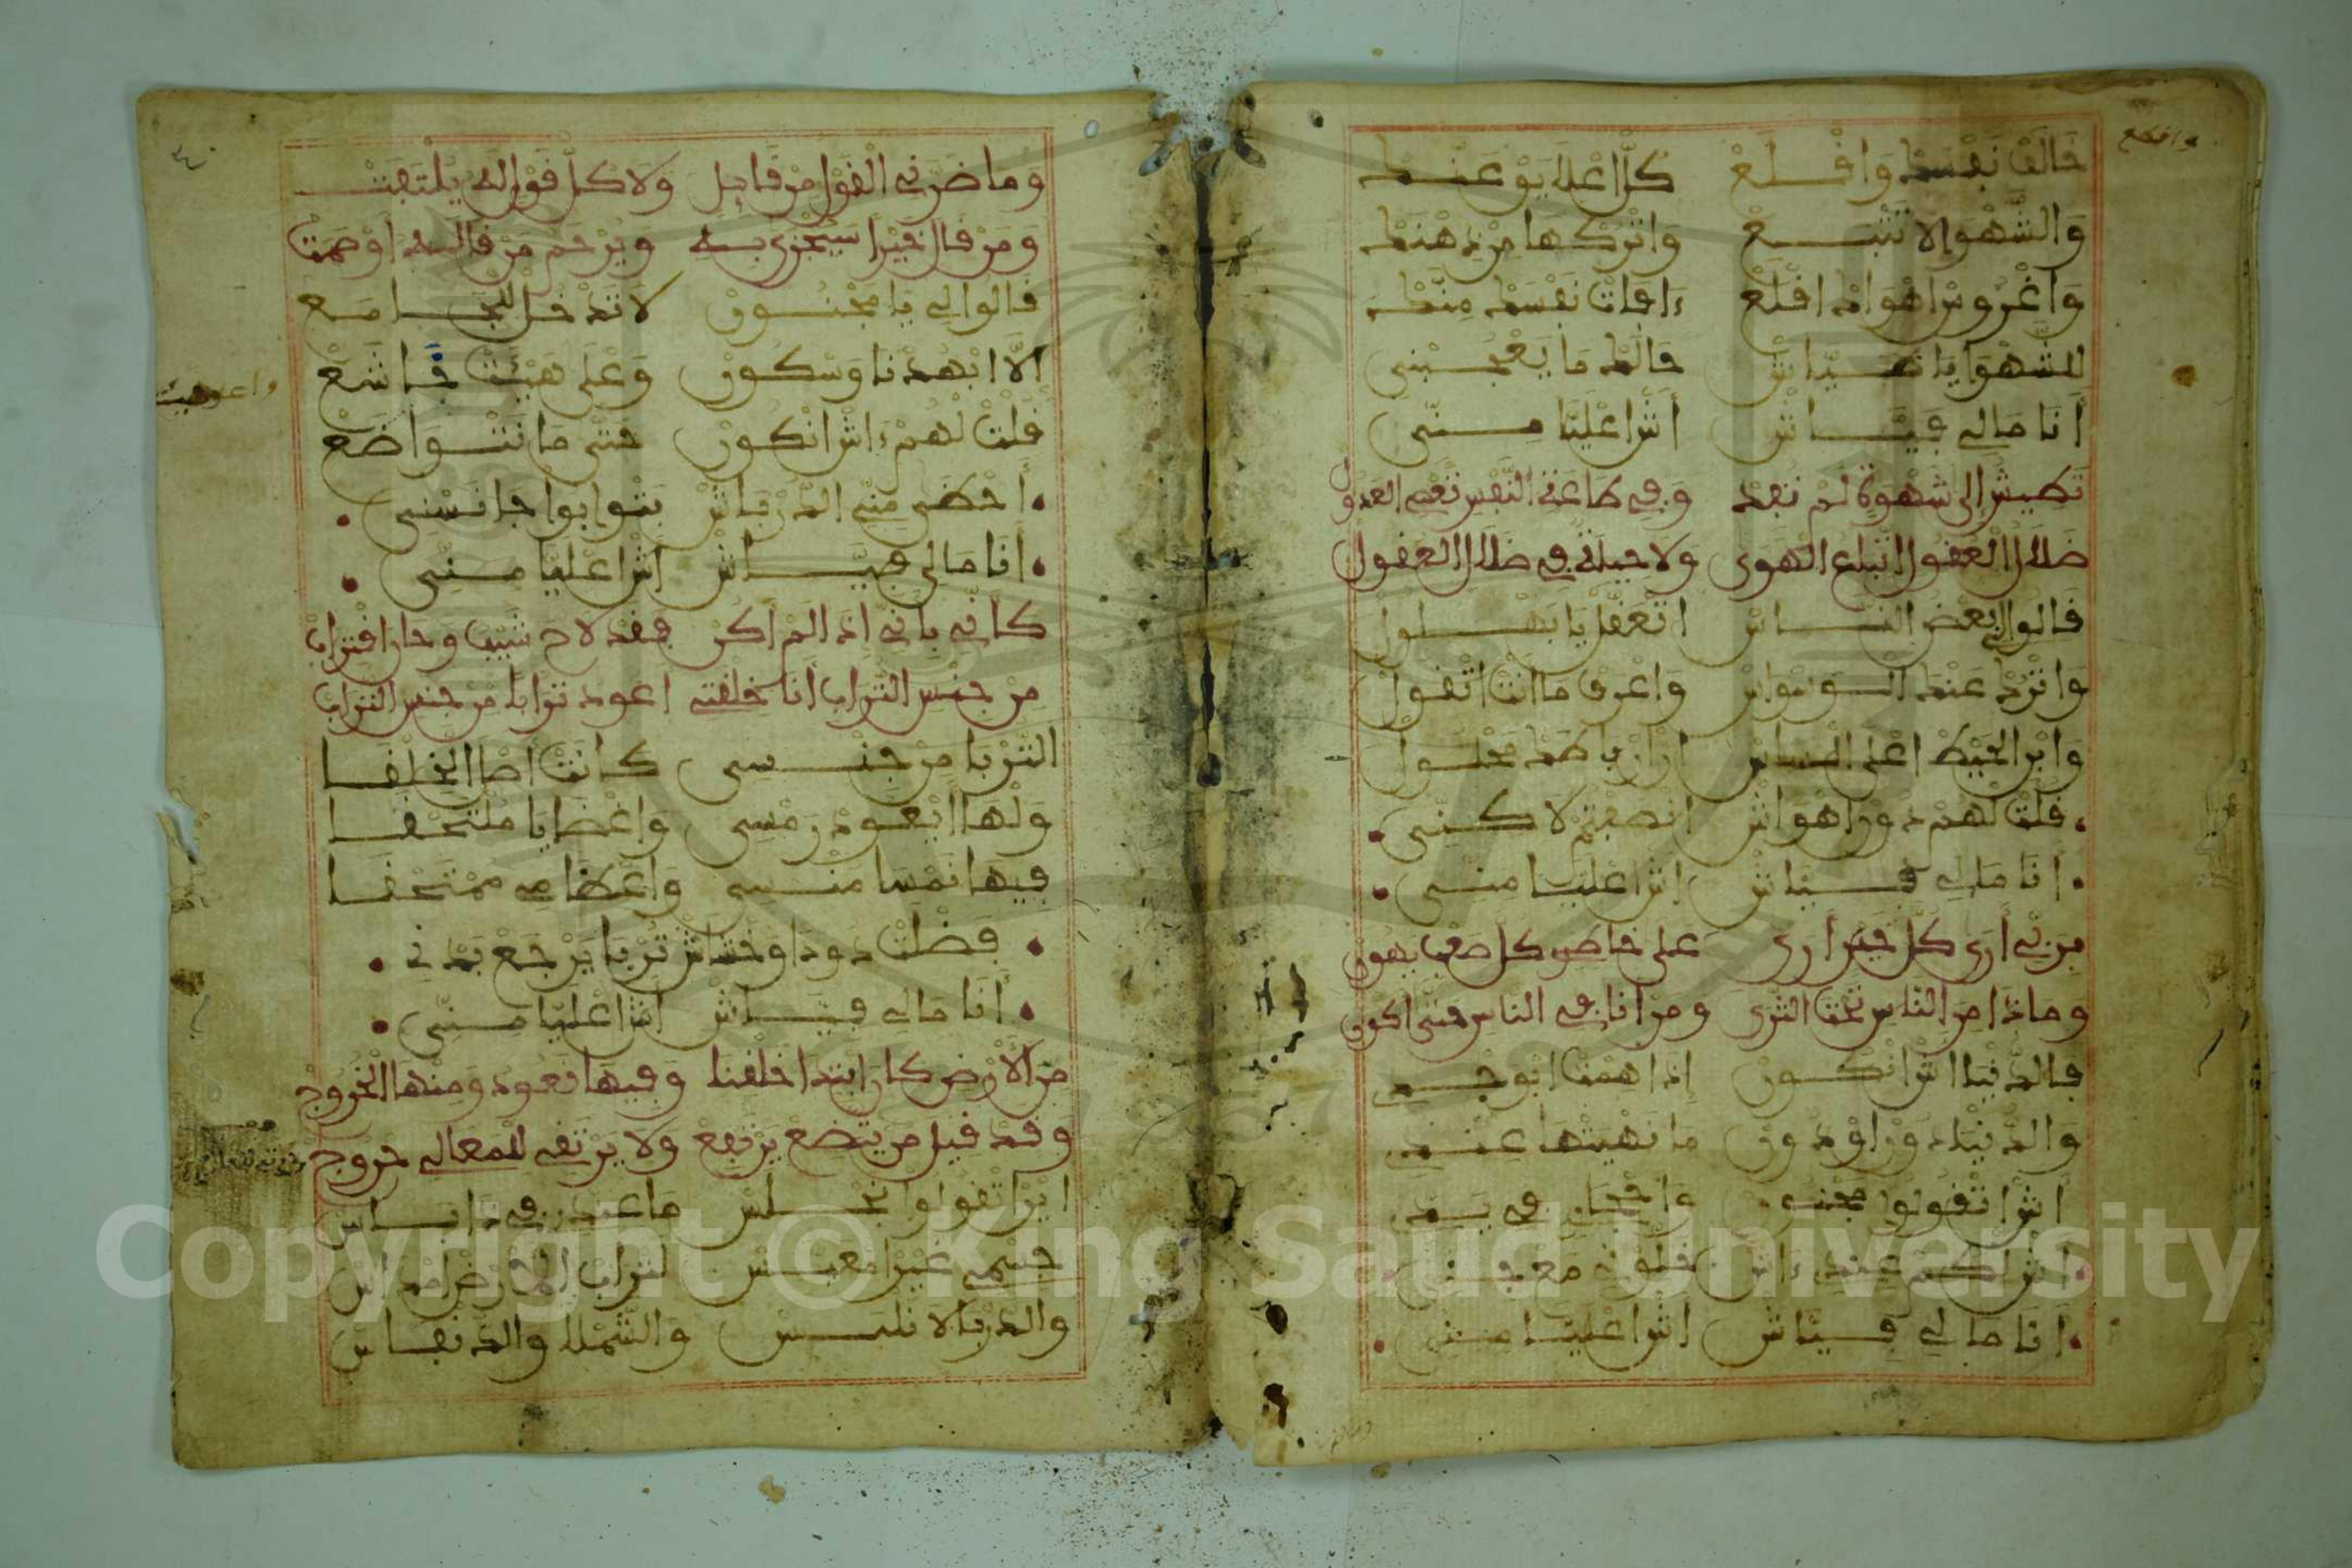 واقطع
خالف نفسك واقلع كل اعلا يوعنك
والشهوا لا تتبع واتركها من ذهنك
واغروس اهواك اقلع ءافات نفسك منك
للشهوا يا تهديداش حالك ما يعجبني
أنا مالي فياش أش اعليا مني
تطيش الى شهوة لم تفد وفي طاعة النفس نعم العدول
ضلال العقول اتباع الهوى ولا حيلة في ضلال العقول
قالوا لي بعض الناس اتعقل يا بهلول
واترك عنك الوسواس واعرف ما انت اتقول
وابن الحيط اعلى الساس
قلت لهم ذ وراهواش انصفتم لاكني
أنا مالي فياش اش اعليا مني
من اني أرى كل خير أرى على خاطري كل صعب يهون
وماذا من الناس تحت الثرى ومن انا في الناس حتى اكون
فالدنيا اش انكون إذا همت ابوجد
والدنيا دون اودون ما نهيتها عندي
اش اتقولوا مجنون واحجاري في يدي
اش اكم عندي ءاش خلوني مع فني
أنا مالي فياش اش اعليا مني
وما ضرني القول من قايل ولا كل قول اله يلتفت
ومن قال خيرا سيجزى به ويرحم من قاله أو صمت
قالوا لي يا مجنون لا تدخل للجامع
إلا ابهدنا وسكون وعلى هيئت خاشع
قلت لهم ءاش انكون حتى ما نتواضع
أحظى مني الدرباش بثوابوا جانسني
أنا مالي فياش أش اعليا مني
كأني باني اذا لم أكن فقد لاح شيب وحان اقتراب
من جنس التراب أنا خلقتي اعود ترابا من جنس التراب
التربا من جنسي كانت أصل الخلقا
ولها ايعود رمسي واعضايا ملتحفا
فيها نمسا منسي واعظامي ممتحقا
فضلت دودا وخشاش تربا يرجع بدني
أنا مالي فياش اش اعليا مني
من الأرض كان ابتدا خلقنا وفيها نعود ومنها الخروج
وقد قيل من يتضع يرتفع ولا يرتقي للمعالي خروج
اين اتقولوا نجلس ما عندي في ذا باس
جسمي غير امعفس لتراب الارض امداس
والدربالا نلبس والشملا والدنفاس